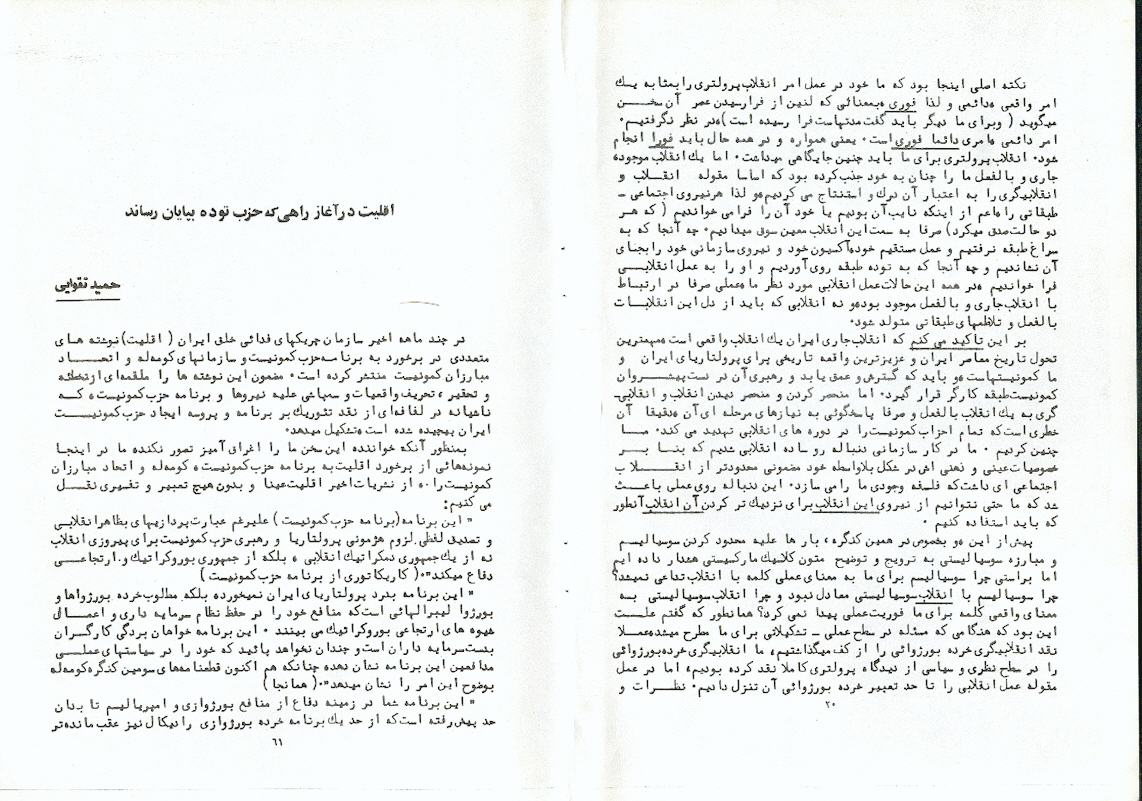 نکته اصلی اینجا بود که ما خود در عمل امر انقلاب پرولتری را بمثابه یک
امر واقعی، دائمی و لذا فوری، بمعنائی که لنین از فرا رسیدن عصر آن سخن
میگوید ( و برای ما دیگر باید گفت مدتهاست فرا رسیده است)، در نظر نگرفتیم.
امر دائمی، امری دائما فوری است. یعنی همواره و در همه حال باید فورا انجام
شود. انقلاب پرولتری برای ما باید چنین جایگاهی میداشت. اما یک انقلاب موجود،
جاری و بالفعل ما را چنان به خود جذب کرده بود که اساسا مقوله انقلاب و
انقلابیگری را به اعتبار آن درک و استنتاج می کردیم، و لذا هر نیروی اجتماعی ـ
طبقاتی را، اعم از اینکه نایب آن بودیم یا خود آن را فرا می خواندیم ( که هر
دو حالت صدق میکرد) صرفا به سمت این انقلاب معین سوق میدادیم. چه آنجا که به
سراغ طبقه نرفتیم و عمل مستقیم خود، آکسیون خود و نیروی سازمانی خود را بجای
آن نشاندیم و چه آنجا که به توده طبقه روی آوردیم و او را به عمل انقلابی
فرا خواندیم، در همه این حالات عمل انقلابی مورد نظر ما، عملی صرفا در ارتباط
با انقلاب جاری و بالفعل موجود بود، و نه انقلابی که باید از دل این انقلابات
بالفعل و تلاطمهای طبقاتی متولد شود.
بر این تاکید می کنم که انقلاب جاری ایران یک انقلاب واقعی است، مهمترین
تحول تاریخ معاصر ایران و عزیزترین واقعه تاریخی برای پرولتاریای ایران و
ما کمونیستهاست، و باید که گسترش و عمق یابد و رهبری آن در دست پیشروان
کمونیست طبقه کارگر قرار گیرد. اما منحصر کردن و منحصر دیدن انقلاب و انقلابی‌
گری به یک انقلاب بالفعل و صرفا پاسخگوئی به نیازهای مرحله ای آن، دقیقا آن
خطری است که تمام احزاب کمونیست را در دوره های انقلابی تهدید می کند. ما
چنین کردیم. ما در کار سازمانی دنباله رو ساده انقلابی شدیم که بنا بر
خصوصیات عینی و ذهنی اش در شکل بلاواسطه خود مضمونی محدودتر از انقلاب
اجتماعی ای داشت که فلسفه وجودی ما را می سازد. این دنباله روی عملی باعث
شد که ما حتی نتوانیم از نیروی این انقلاب برای نزدیک تر کردن آن انقلاب آنطور
که باید استفاده کنیم .
پیش از این، و بخصوص در همین کنگره، بار ها علیه محدود کردن سوسیالیسم
و مبارزه سوسیالیستی به ترویج و توضیح متون کلاسیک مارکسیستی هشدار داده ایم
اما براستی چرا سوسیالیسم برای ما به معنای عملی کلمه با انقلاب تداعی نمیشد؟
چرا سوسیالیسم با انقلاب سوسیالیستی معادل نبود و چرا انقلاب سوسیالیستی به
معنای واقعی کلمه برای ما فوریت عملی پیدا نمی کرد؟ همانطور که گفتم علت
این بود که هنگامی که مسئله در سطح عملی ـ تشکیلاتی برای ما مطرح میشد، عملا
نقد انقلابیگری خرده بورژوائی را از کف میگذاشتیم، ما انقلابیگری خرده بورژوائی
را در سطح نظری و سیاسی از دیدگاه پرولتری کاملا نقد کرده بودیم، اما در عمل
مقوله عمل انقلابی را تا حد تعبیر خرده بورژوائی آن تنزل دادیم. نظرات و
۲۰
اقلیت در آغاز راهی که حزب توده بپایان رساند
حمید تقوایی
در چند ماهه اخیر سازمان چریکهای فدائی خلق ایران ( اقلیت) نوشته های
متعددی در برخورد به برنامه حزب کمونیست و سازمانهای کومه له و اتحاد
مبارزان کمونیست منتشر کرده است. مضمون این نوشته ها را ملقمه‌ای از تخطئه
و تحقیر، تحریف واقعیات و سمپاشی علیه نیروها و برنامه حزب کمونیست، که
ناشیانه در لفافه‌ای از نقد تئوریک بر برنامه و پروسه ایجاد حزب کمونیست
ایران پیچیده شده است، تشکیل میدهد.
بمنظور آنکه خواننده این سخن ما را اغراق آمیز تصور نکند، ما در اینجا
نمونه‌هائی از برخورد اقلیت به برنامه حزب کمونیست، کومه له و اتحاد مبارزان
کمونیست را ، از نشریات اخیر اقلیت عینا و بدون هیچ تعبیر و تفسیری نقل
می کنیم:
" این برنامه (برنامه حزب کمونیست) علیرغم عبارت پردازیهای بظاهر انقلابی
و تصدیق لفظی لزوم هژمونی پرولتاریا و رهبری حزب کمونیست برای پیروزی انقلاب
نه از یک جمهوری دمکراتیک انقلابی ، بلکه از جمهوری بوروکراتیک و ارتجاعی
دفاع میکند". ( کاریکاتوری از برنامه حزب کمونیست )
" این برنامه بدرد پرولتاریای ایران نمیخورد، بلکه مطلوب خرده بورژواها و
بورژوا لیبرالهائی است که منافع خود را در حفظ نظام سرمایه داری و اعمال
شیوه های ارتجاعی بوروکراتیک می بینند . این برنامه خواهان بردگی کارگران
بدست سرمایه داران است و چندان نخواهد پائید که خود را در سیاستهای عملی
مدافعین این برنامه نشان دهد، چنانکه هم اکنون قطعنامه‌های سومین کنگره کومه له
بوضوح این امر را نشان میدهد". ( همانجا )
" این برنامه شما در زمینه دفاع از منافع بورژوازی و امپریالیسم تا بدان
حد پیش رفته است که از حد یک برنامه خرده بورژوازی رادیکال نیز عقب مانده‌تر
۶۱